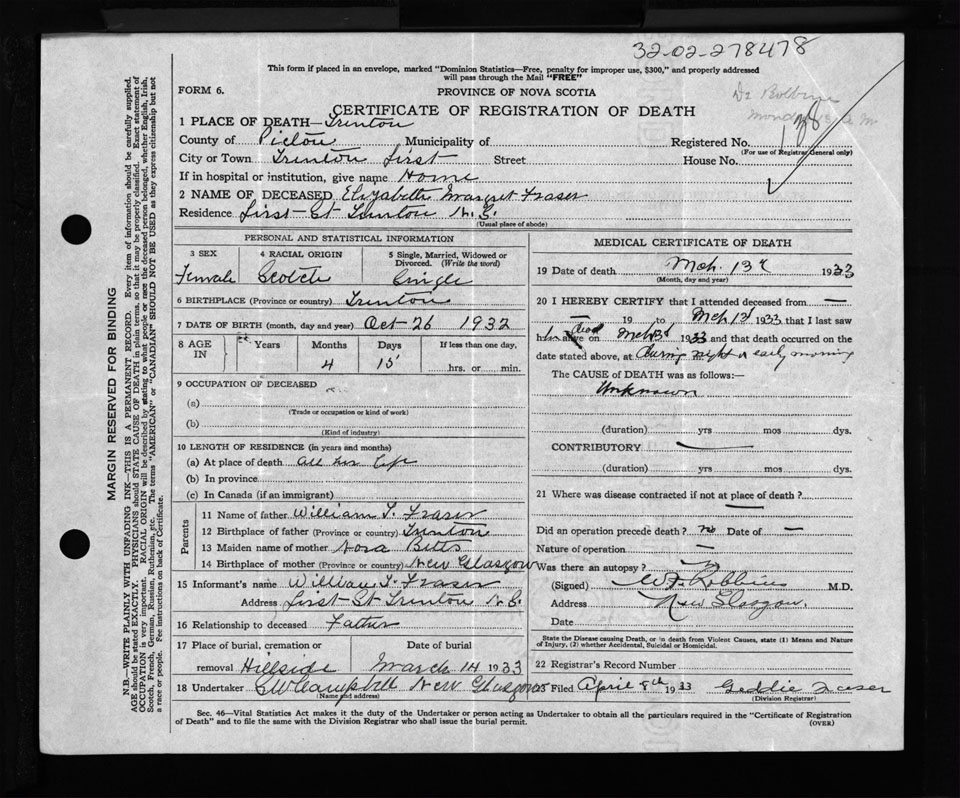 32-02-278478
This form if placed in an envelope, marked "Dominion Statistics—Free, penalty for improper use, $300," and properly addressed
will pass through the Mail "FREE"
FORM 6.
PROVINCE OF NOVA SCOTIA
CERTIFICATE OF REGISTRATION OF DEATH
1 PLACE OF DEATH—Trenton
County of Pictou Municipality of Registered No.
(For use of Registrar General only)
City or Town Trenton First Street House No.
If in hospital or institution, give name Home
2 NAME OF DECEASED Elizabeth Margret Fraser
Residence First-St Trenton N.S.
(Usual place of abode)
PERSONAL AND STATISTICAL INFORMATION
3 SEX 4 RACIAL ORIGIN 5 Single, Married, Widowed or Divorced. (Write the word)
Female Scotch Single
6 BIRTHPLACE (Province or country) Trenton
7 DATE OF BIRTH (month, day and year) Oct 26 1932
8 AGE IN Years Months Days If less than one day,
4 15 hrs. or min.
9 OCCUPATION OF DECEASED
(a)
(Trade or occupation or kind of work)
(b)
(Kind of industry)
10 LENGTH OF RESIDENCE (in years and months)
(a) At place of death all her life
(b) In province
(c) In Canada (if an immigrant)
Parents
11 Name of father William T. Fraser
12 Birthplace of father (Province or country) Trenton
13 Maiden name of mother Nora Betts
14 Birthplace of mother (Province or country) New Glasgow
15 Informant's name William T. Fraser
Address First-St Trenton N.S.
16 Relationship to deceased Father
17 Place of burial, cremation or removal Date of burial
Hillside March 14 1933
18 Undertaker New Glasgow
(Name and address)
MEDICAL CERTIFICATE OF DEATH
19 Date of death Mch. 13 1933
(Month, day and year)
20 I HEREBY CERTIFY that I attended deceased from —
— 19 to Mch 13 1933 that I last saw
h alive dead on Mch 13 1933 and that death occurred on the
date stated above, at during night or early morning
The CAUSE OF DEATH was as follows:—
Unknown
(duration) yrs mos dys.
CONTRIBUTORY —
(duration) yrs mos dys.
21 Where was disease contracted if not at place of death?
—
Did an operation precede death? no Date of —
Nature of operation —
Was there an autopsy? no
(Signed) Robbins M.D.
Address New Glasgow.
Date
State the Disease causing Death, or in death from Violent Causes, state (1) Means and Nature
of Injury, (2) whether Accidental, Suicidal or Homicidal.
22 Registrar's Record Number
23 Filed April 1933 Geddie Fraser
(Division Registrar)
Sec. 46—Vital Statistics Act makes it the duty of the Undertaker or person acting as Undertaker to obtain all the particulars required in the "Certificate of Registration
of Death" and to file the same with the Division Registrar who shall issue the burial permit.
(OVER)
MARGIN RESERVED FOR BINDING
N.B.—WRITE PLAINLY WITH UNFADING INK—THIS IS A PERMANENT RECORD. Every item of information should be carefully supplied.
AGE should be stated EXACTLY. PHYSICIANS should STATE CAUSE OF DEATH in plain terms, so that it may be properly classified. Exact statement of
OCCUPATION is very important. RACIAL ORIGIN will be described by stating to what people or race the deceased person belonged, whether English, Irish,
Scotch, French, German, Russian, Ruthenian, etc. The terms "AMERICAN" or "CANADIAN" SHOULD NOT BE USED as they express citizenship but not
a race or people. Fee instructions on back of Certificate.